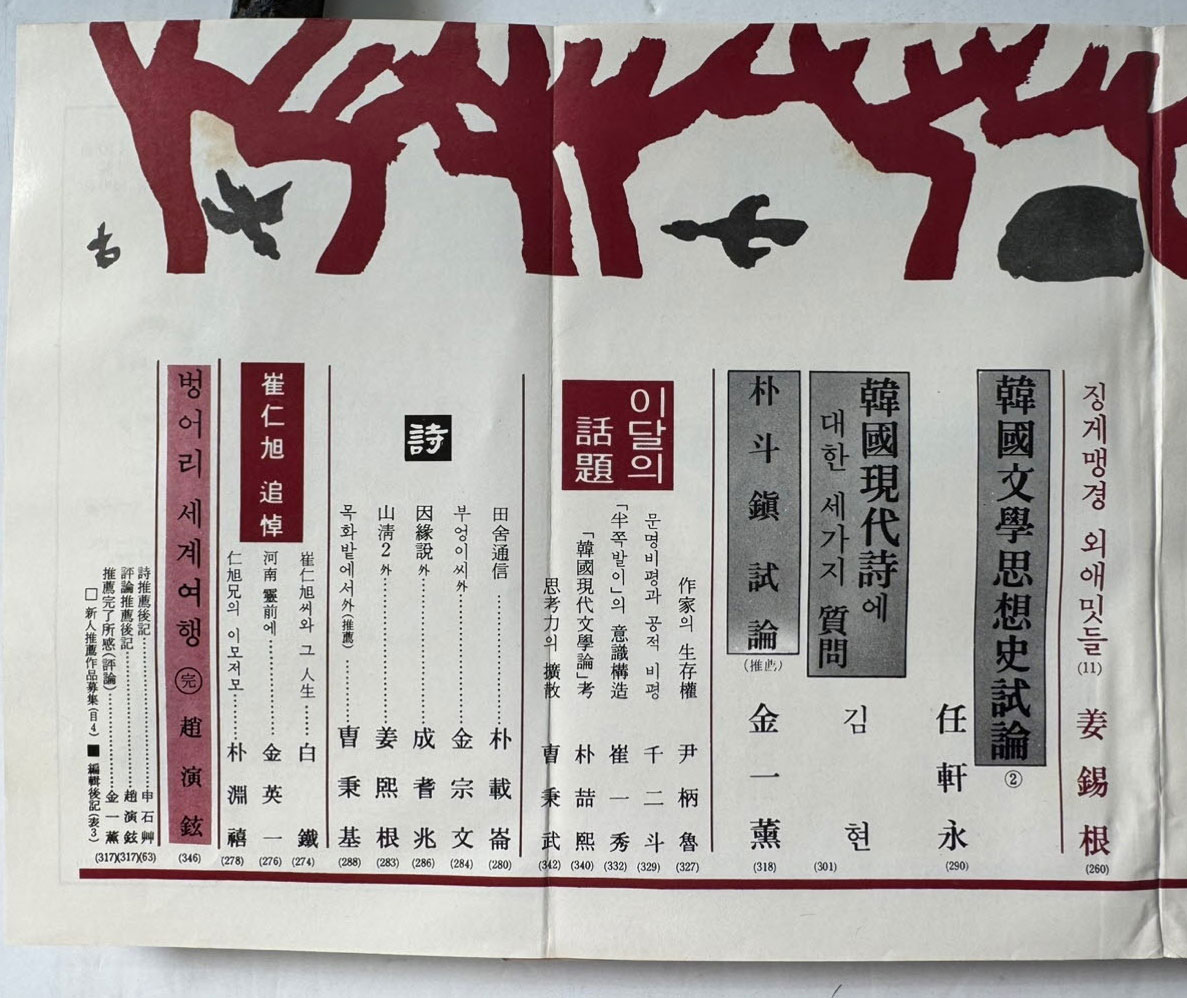 징게맹경 외애밋들 (11) 姜錫根 (260)
韓國文學思想史試論 ② 任軒永 (290)
韓國現代詩에
대한 세가지 質問 김현 (301)
朴斗鎭試論 (推薦) 金一薰 (318)
이달의
話題
作家의 生存權 尹柄魯 (327)
문명비평과 공적 비평 千二斗 (329)
「半쪽발이」의 意識構造 崔一秀 (332)
「韓國現代文學論」考 朴喆熙 (340)
思考力의 擴散 曺秉武 (342)
詩
田舍通信 朴載崙 (280)
부엉이씨外 金宗文 (284)
因緣說外 成耆兆 (286)
山淸2外 姜熙根 (283)
목화밭에서外(推薦) 曺秉基 (288)
崔仁旭 追悼
崔仁旭씨와 그 人生 白鐵 (274)
河南 靈前에 金英一 (276)
仁旭兄의 이모저모 朴淵禧 (278)
벙어리 세계여행 完 趙演鉉 (346)
詩推薦後記 申石艸 (63)
評論推薦後記 趙演鉉 (317)
推薦完了所感(評論) 金一薰 (317)
□ 新人推薦作品募集(目4) ■ 編輯後記(表3)